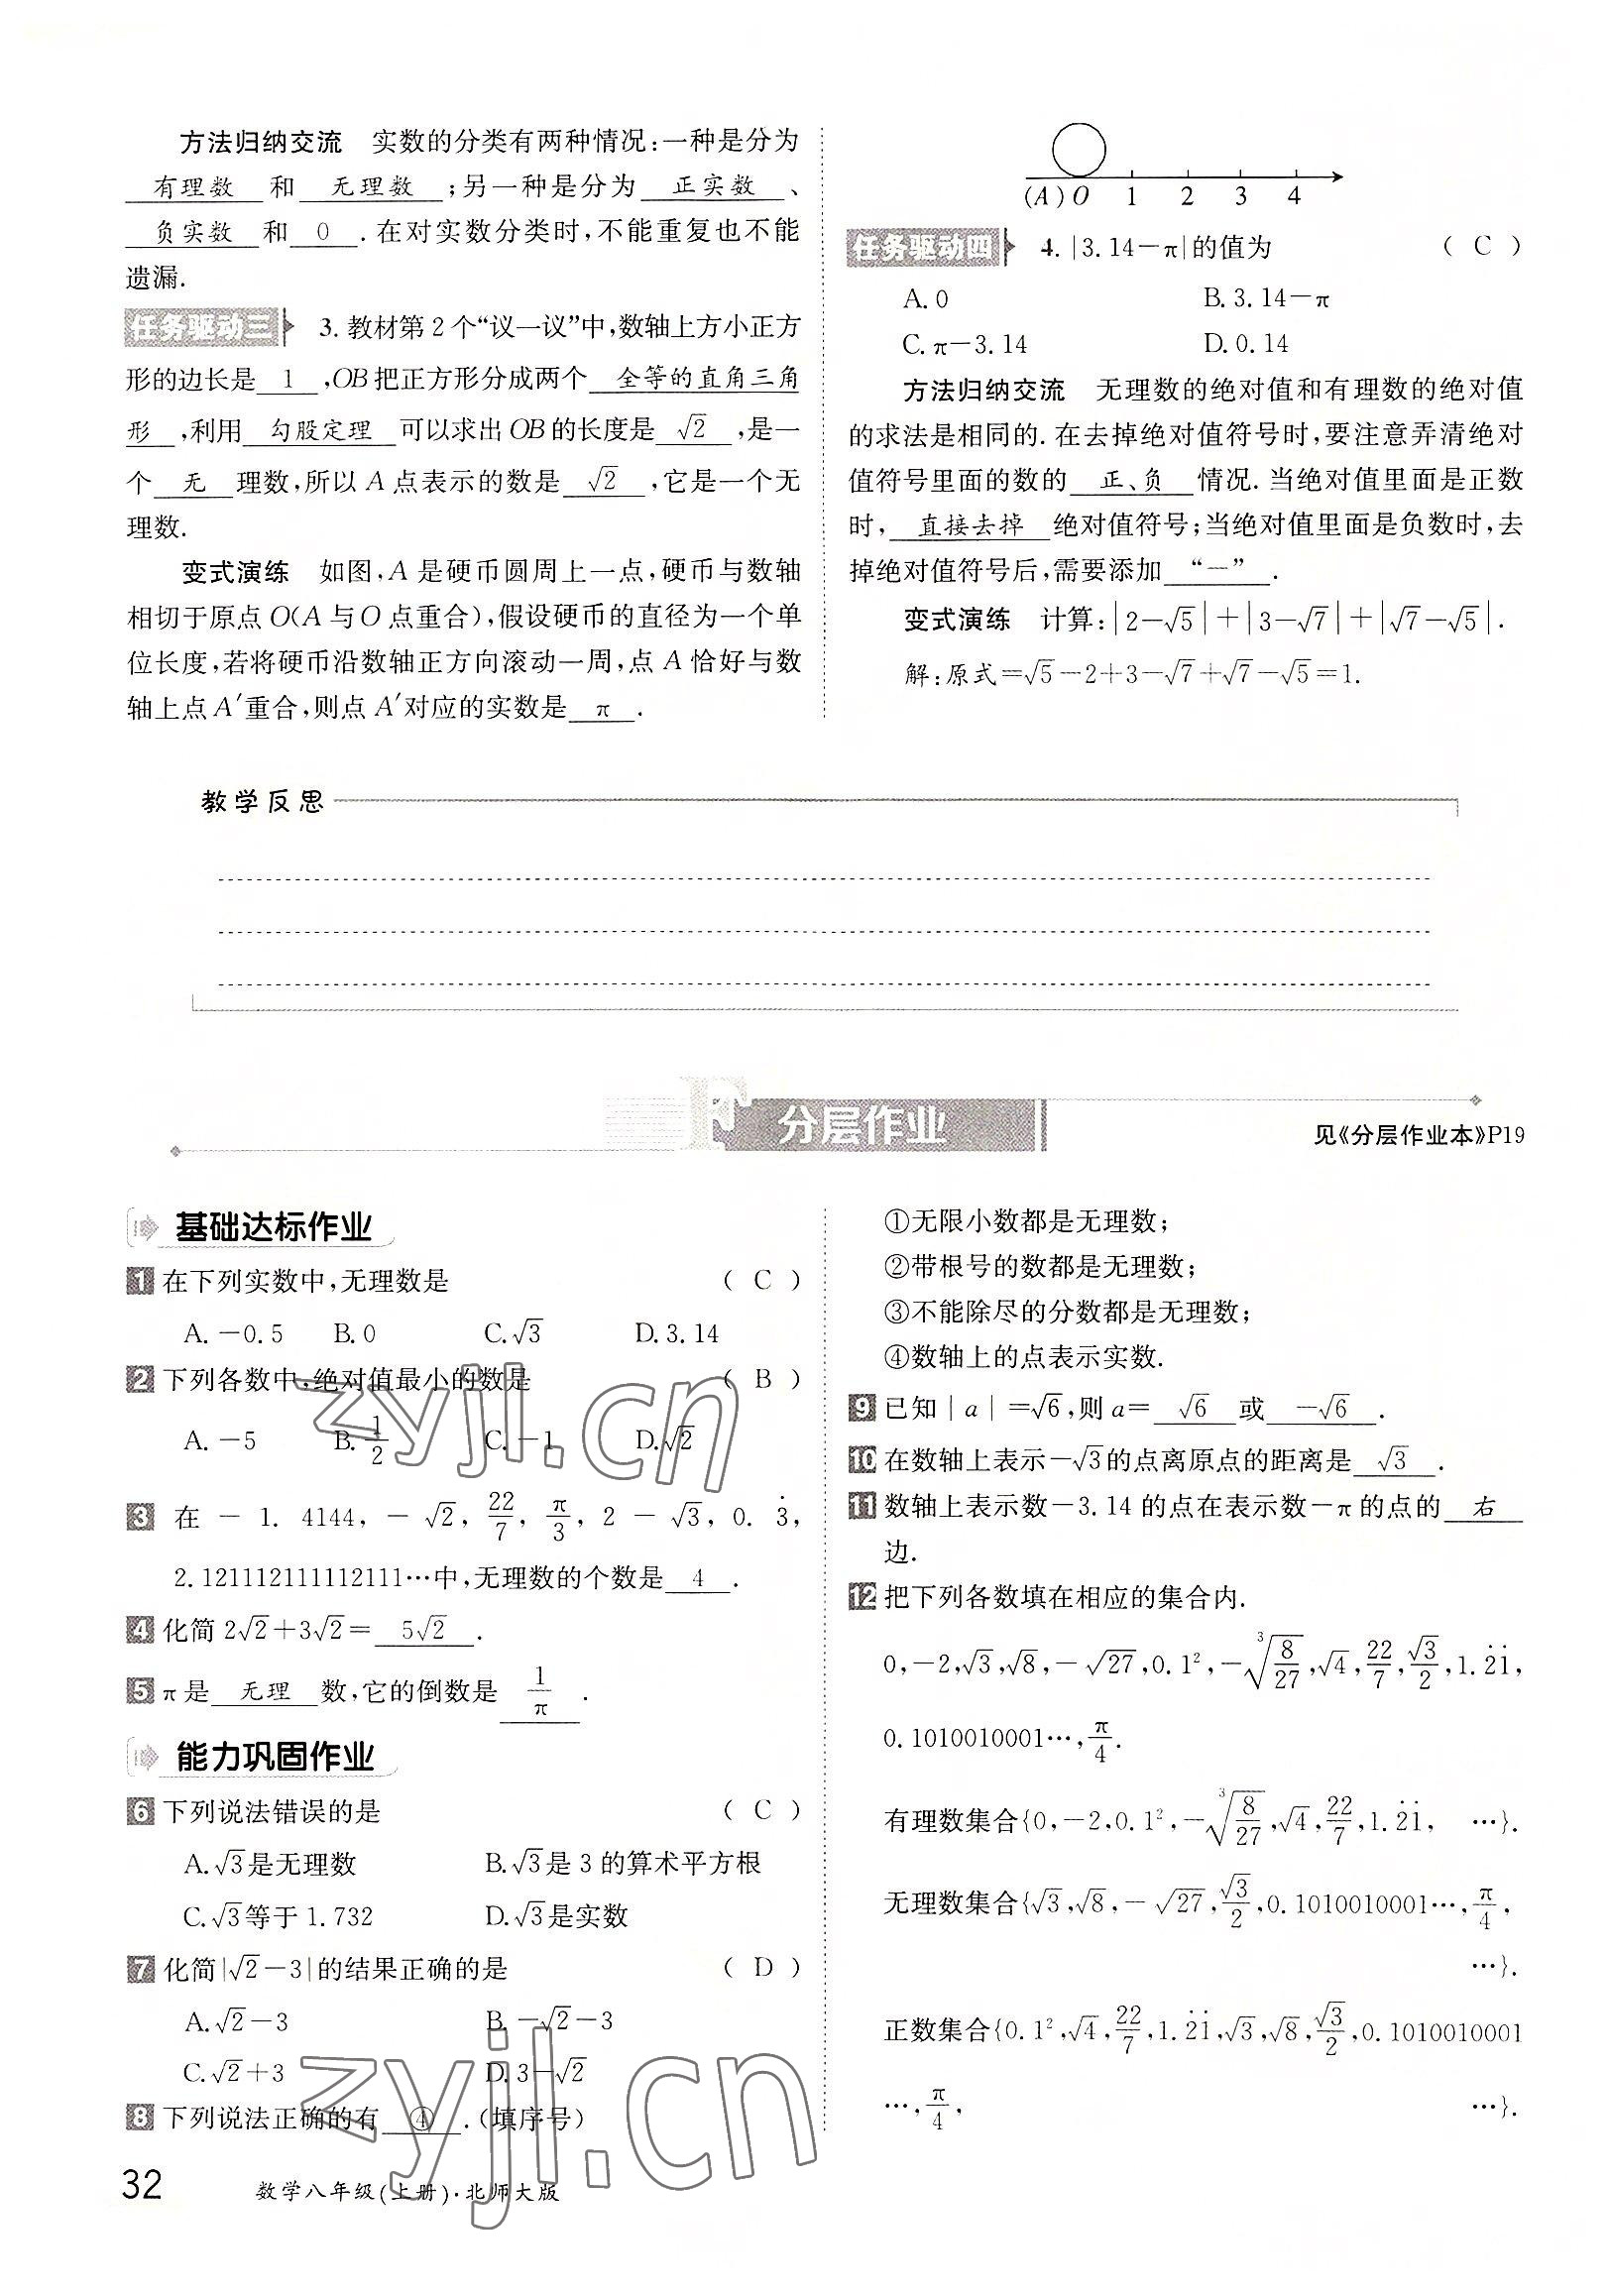 方法归纳交流 实数的分类有两种情况:一种是分为
有理数 和 无理数 ;另一种是分为 正实数 、
负实数 和 0 .在对实数分类时,不能重复也不能
遗漏.
任务驱动三 3.教材第2个“议一议”中,数轴上方小正方
形的边长是 1 ,OB把正方形分成两个 全等的直角三角
形 ,利用 勾股定理 可以求出OB的长度是 √2 ,是一
个 无 理数,所以A点表示的数是 √2 ,它是一个无
理数.
变式演练 如图,A是硬币圆周上一点,硬币与数轴
相切于原点O(A与O点重合),假设硬币的直径为一个单
位长度,若将硬币沿数轴正方向滚动一周,点A恰好与数
轴上点A′重合,则点A′对应的实数是 π .
(A) O 1 2 3 4
任务驱动四 4.|3.14-π|的值为 ( C )
A.0 B.3.14-π
C.π-3.14 D.0.14
方法归纳交流 无理数的绝对值和有理数的绝对值
的求法是相同的.在去掉绝对值符号时,要注意弄清绝对
值符号里面的数的 正、负 情况.当绝对值里面是正数
时, 直接去掉 绝对值符号;当绝对值里面是负数时,去
掉绝对值符号后,需要添加 “-” .
变式演练 计算:|2-√5|+|3-√7|+|√7-√5|.
解:原式=√5-2+3-√7+√7-√5=1.
教学反思
分层作业
见《分层作业本》P19
基础达标作业
1 在下列实数中,无理数是 ( C )
A.-0.5 B.0 C.√3 D.3.14
2 下列各数中,绝对值最小的数是 ( B )
A.-5 B.1/2 C.-1 D.√2
3 在-1.4144,-√2,22/7,π/3,2-√3,0.3̇,
2.121112111112111…中,无理数的个数是 4 .
4 化简2√2+3√2= 5√2 .
5 π是 无理 数,它的倒数是 1/π .
能力巩固作业
6 下列说法错误的是 ( C )
A.√3是无理数 B.√3是3的算术平方根
C.√3等于1.732 D.√3是实数
7 化简|√2-3|的结果正确的是 ( D )
A.√2-3 B.-√2-3
C.√2+3 D.3-√2
8 下列说法正确的有 ④ .(填序号)
①无限小数都是无理数;
②带根号的数都是无理数;
③不能除尽的分数都是无理数;
④数轴上的点表示实数.
9 已知|a|=√6,则a= √6 或 -√6 .
10 在数轴上表示-√3的点离原点的距离是 √3 .
11 数轴上表示数-3.14的点在表示数-π的点的 右
边.
12 把下列各数填在相应的集合内.
0,-2,√3,√8,-√27,0.1²,-∛(8/27),√4,22/7,√3/2,1.2̇1̇,
0.1010010001…,π/4.
有理数集合{0,-2,0.1²,-∛(8/27),√4,22/7,1.2̇1̇, …}.
无理数集合{√3,√8,-√27,√3/2,0.1010010001…,π/4,
…}.
正数集合{0.1²,√4,22/7,1.2̇1̇,√3,√8,√3/2,0.1010010001
…,π/4, …}.
32 数学八年级(上册)·北师大版
zyjl.cn
zyjl.cn